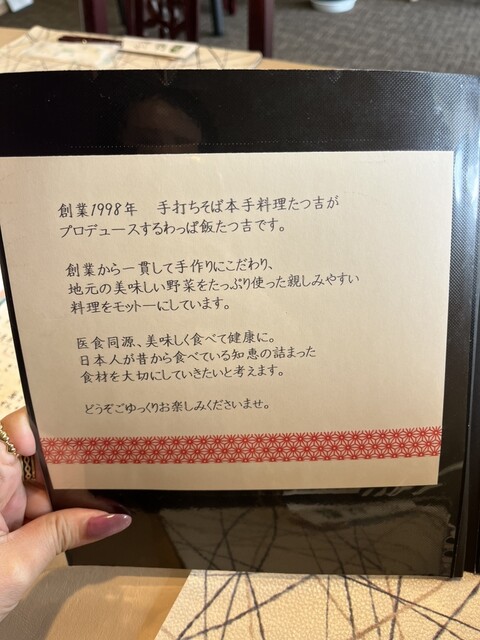 創業1998年　手打ちそば本手料理たつ吉が
プロデュースするわっぱ飯たつ吉です。
創業から一貫して手作りにこだわり、
地元の美味しい野菜をたっぷり使った親しみやすい
料理をモットーにしています。
医食同源、美味しく食べて健康に。
日本人が昔から食べている知恵の詰まった
食材を大切にしていきたいと考えます。
どうぞごゆっくりお楽しみくださいませ。